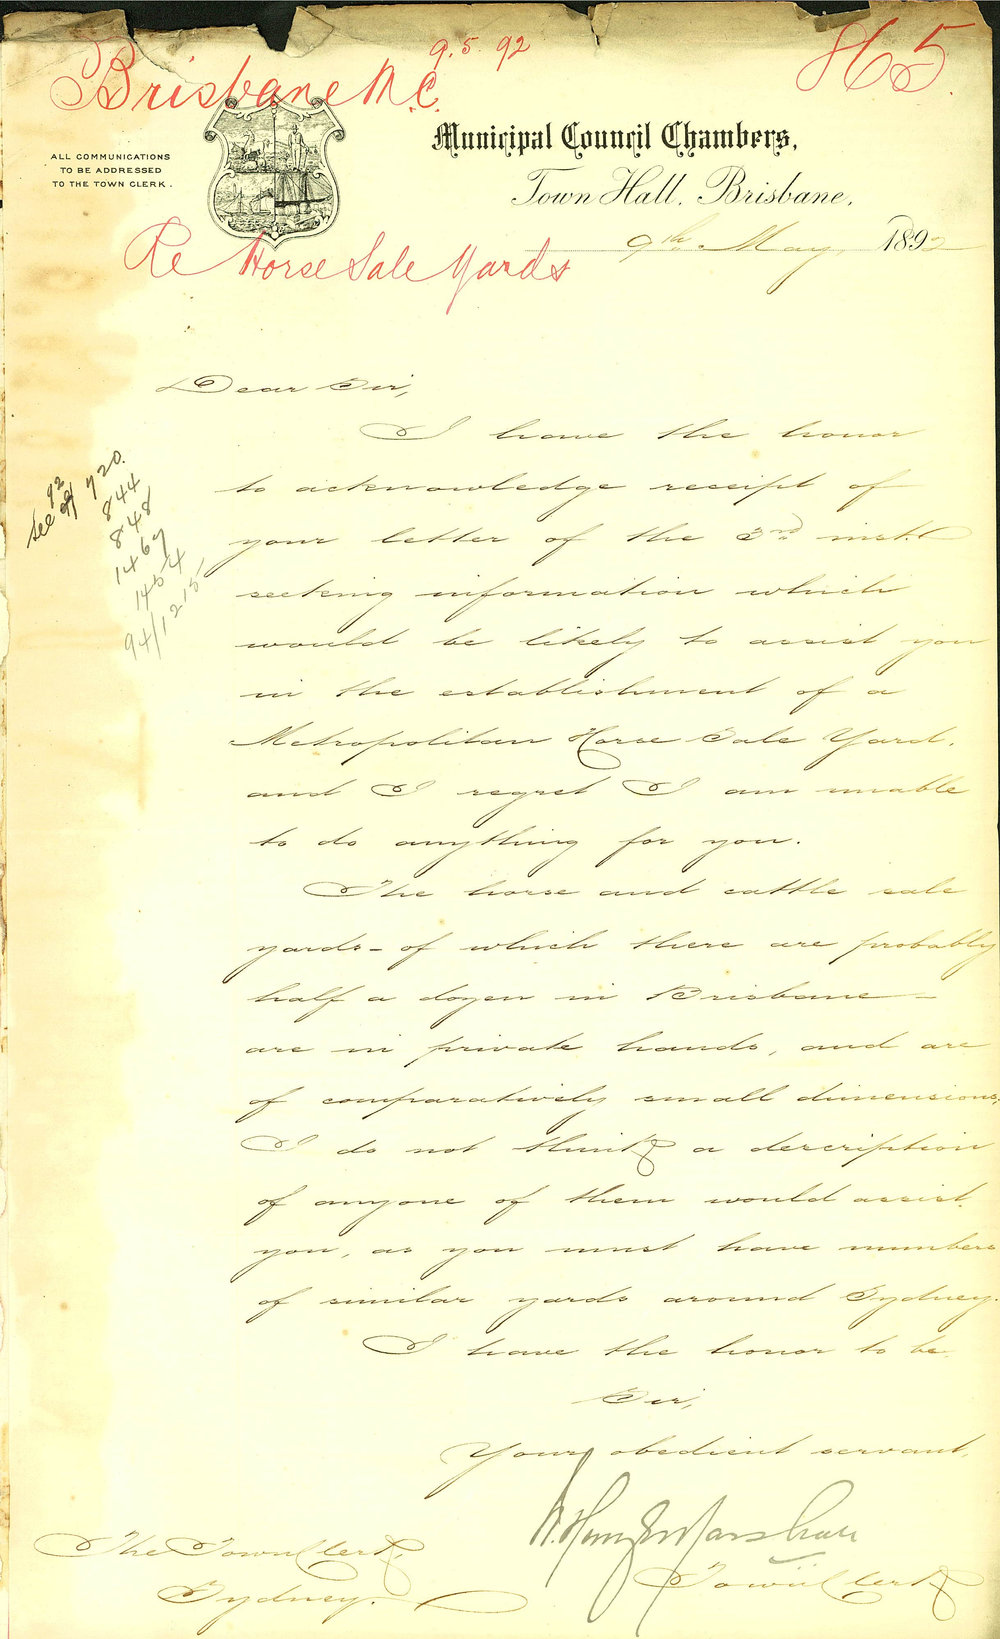 9.5.92
865
Brisbane M.C.
ALL COMMUNICATIONS
TO BE ADDRESSED
TO THE TOWN CLERK.
Municipal Council Chambers,
Town Hall, Brisbane,
9th May 1892
Re Horse Sale Yards
Dear Sir,
I have the honor
to acknowledge receipt of
your letter of the 3rd inst.
seeking information which
would be likely to assist you
in the establishment of a
Metropolitan Horse Sale Yard,
and I regret I am unable
to do anything for you.
The horse and cattle sale
yards – of which there are probably
half a dozen in Brisbane –
are in private hands, and are
of comparatively small dimensions,
I do not think a description
of anyone of them would assist
you, as you must have numbers
of similar yards around Sydney.
I have the honor to be
Sir,
Your obedient servant,
Marshall
Town Clerk
The Town Clerk,
Sydney.
see 92/720.
844
848
1467
1454
94/1215